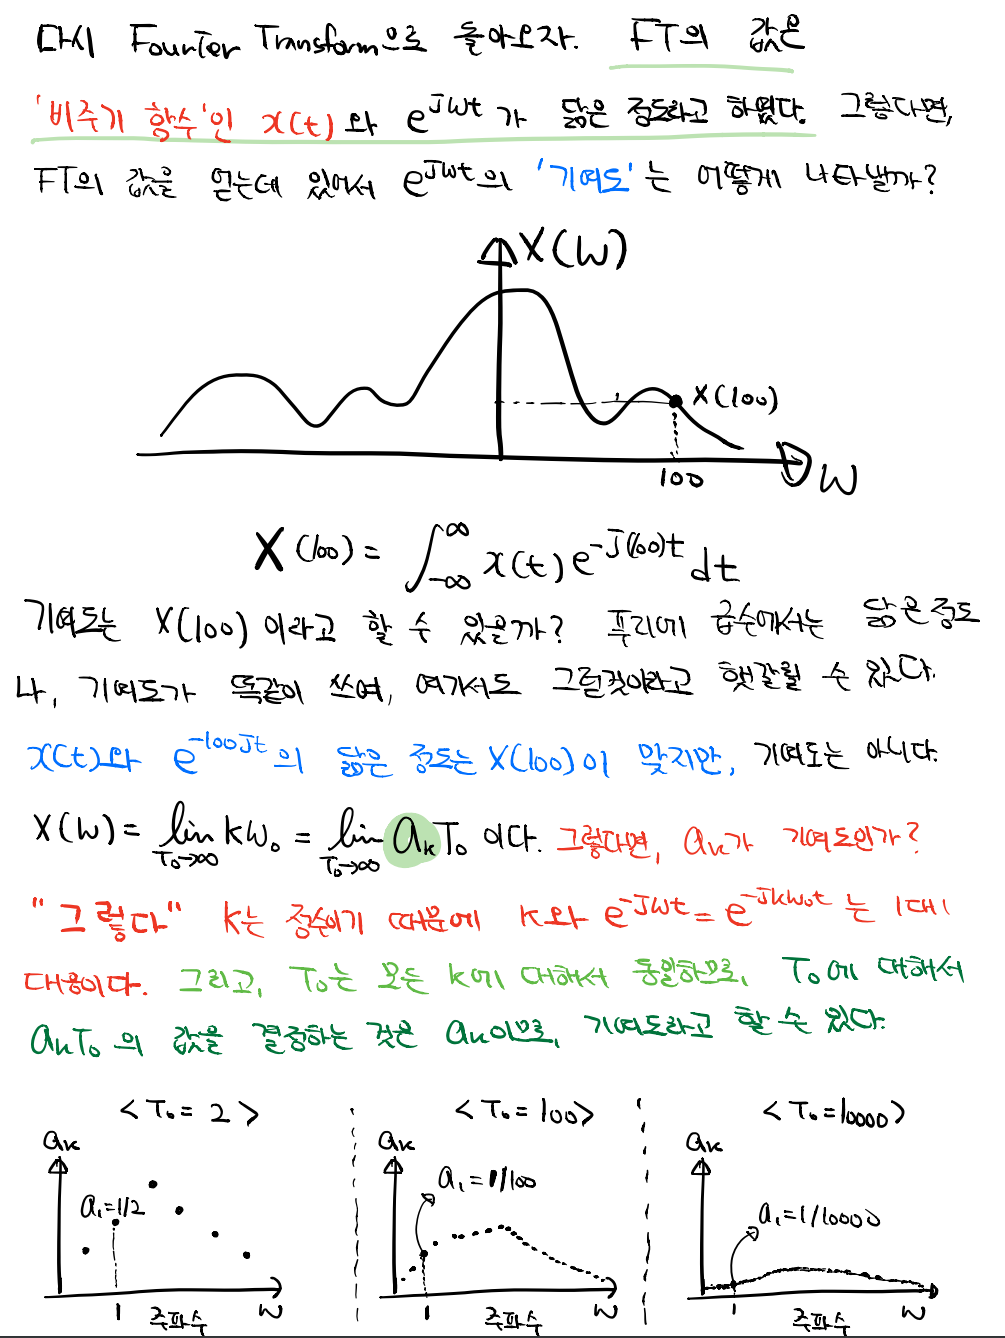 다시 Fourier Transform으로 돌아오자. FT의 값은
'비주기 함수'인 x(t)와 e^{jwt}가 닮은 정도라고 하였다. 그렇다면,
FT의 값을 얻는데 있어서 e^{jwt}의 '기여도'는 어떻게 나타낼까?
X(w)
X(100)
100
w
X(100) = ∫_{-∞}^{∞} x(t) e^{-j(100)t} dt
기여도는 X(100)이라고 할 수 있을까? 푸리에 급수에서는 닮은 정도
나, 기여도가 똑같이 쓰여, 여기서도 그럴것이라고 햇갈릴 수 있다.
x(t)와 e^{-100jt}의 닮은 정도는 X(100)이 맞지만, 기여도는 아니다.
X(w) = lim_{T₀→∞} kw₀ = lim_{T₀→∞} a_k T₀ 이다. 그렇다면, a_k가 기여도인가?
"그렇다" k는 정수이기 때문에 k와 e^{-jwt} = e^{-jkw₀t}는 1대1
대응이다. 그리고, T₀는 모든 k에 대해서 동일하므로, T₀에 대해서
a_k T₀의 값을 결정하는 것은 a_k이므로, 기여도라고 할 수 있다.
<T₀ = 2> <T₀ = 100> <T₀ = 10000>
a_k a_k a_k
a₁=1/2 a₁=1/100 a₁=1/10000
1 w 1 w 1 w
주파수 주파수 주파수